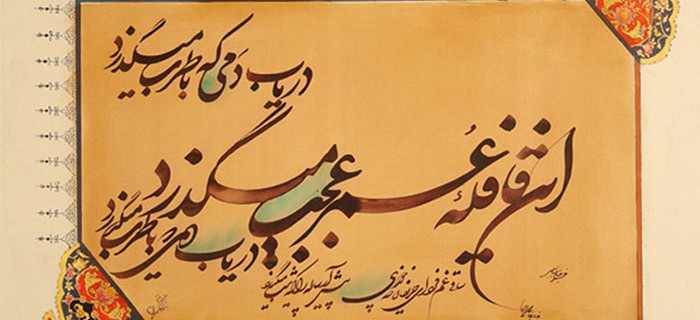 دریاب دمی که با طرب میگذرد
این قافلهٔ عمر عجب میگذرد
دریاب دمی که با طرب میگذرد
ساقی غم فردای حریفان چه خوری
پیش آر پیاله را که شب میگذرد